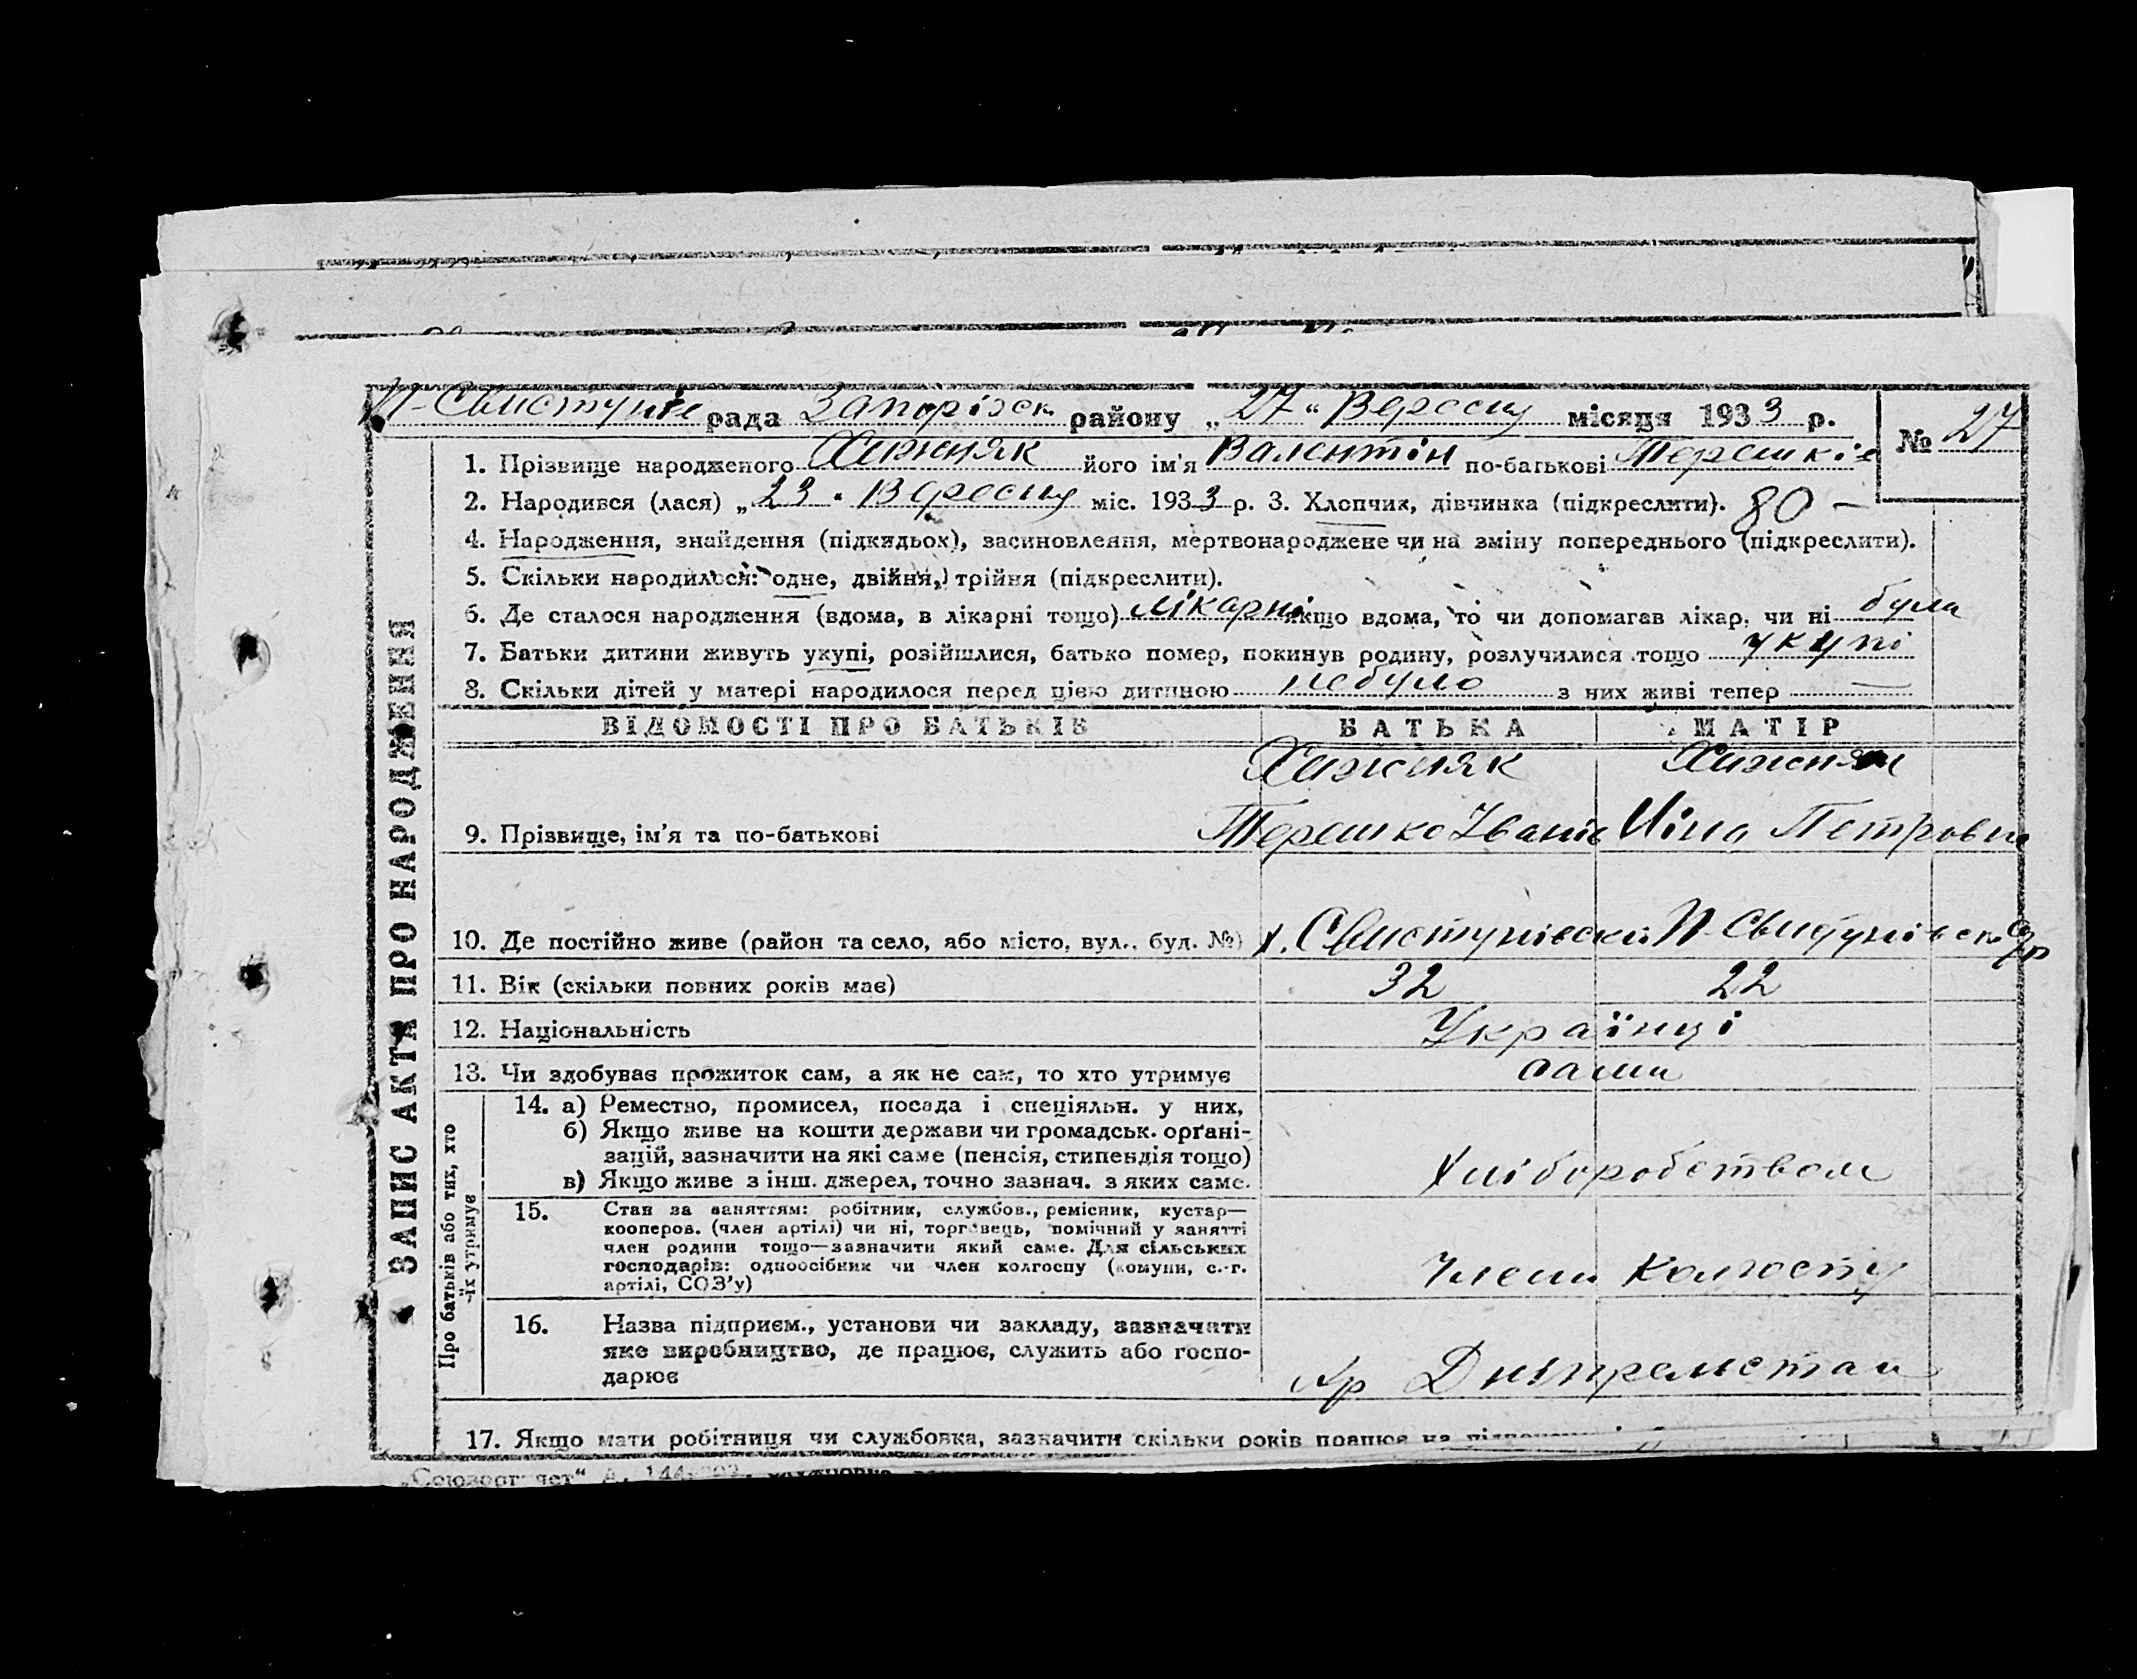 Н-Свистунівс рада Запорізск району „27“ Вересну місяця 1933 р. № 27
1. Прізвище народженого Хижняк його ім'я Валентін по-батькові Терешків
2. Народився (лася) „23“ Вересну міс. 1933 р. 3. Хлопчик, дівчинка (підкреслити). 80 —
4. Народження, знайдення (підкидьок), засиновлення, мертвонароджене чи на зміну попереднього (підкреслити).
5. Скільки народилося: одне, двійня, трійня (підкреслити).
6. Де сталося народження (вдома, в лікарні тощо) лікарні якщо вдома, то чи допомагав лікар, чи ні була
7. Батьки дитини живуть укупі, розійшлися, батько помер, покинув родину, розлучилися тощо укупі
8. Скільки дітей у матері народилося перед цією дитиною небуло з них живі тепер —
ЗАПИС АКТА ПРО НАРОДЖЕННЯ
ВІДОМОСТІ ПРО БАТЬКІВ БАТЬКА МАТІР
Хижняк Хижняк
9. Прізвище, ім'я та по-батькові Терешко Іванів Ніна Петровна
10. Де постійно живе (район та село, або місто, вул., буд. №) х. Свистунівский Н-Свистунівск.
11. Вік (скільки повних років має) 32 22
12. Національність Українці
13. Чи здобуває прожиток сам, а як не сам, то хто утримує сами
Про батьків або тих, хто
їх утримує
14. а) Ремество, промисел, посада і спеціяльн. у них,
б) Якщо живе на кошти держави чи громадськ. орґані-
зацій, зазначити на які саме (пенсія, стипендія тощо)
в) Якщо живе з інш. джерел, точно зазнач. з яких саме. Хліборобством
15. Стан за заняттям: робітник, службов., ремісник, кустар—
кооперов. (член артілі) чи ні, торговець, помічний у занятті
член родини тощо—зазначити який саме. Для сільських
господарів: одноосібник чи член колгоспу (комуни, с.-г.
артілі, СОЗ'у) Члени Колгоспу
16. Назва підприєм., установи чи закладу, зазначити
яке виробництво, де працює, служить або госпо-
дарює
17. Якщо мати робітниця чи службовка, зазначити скільки років працює на